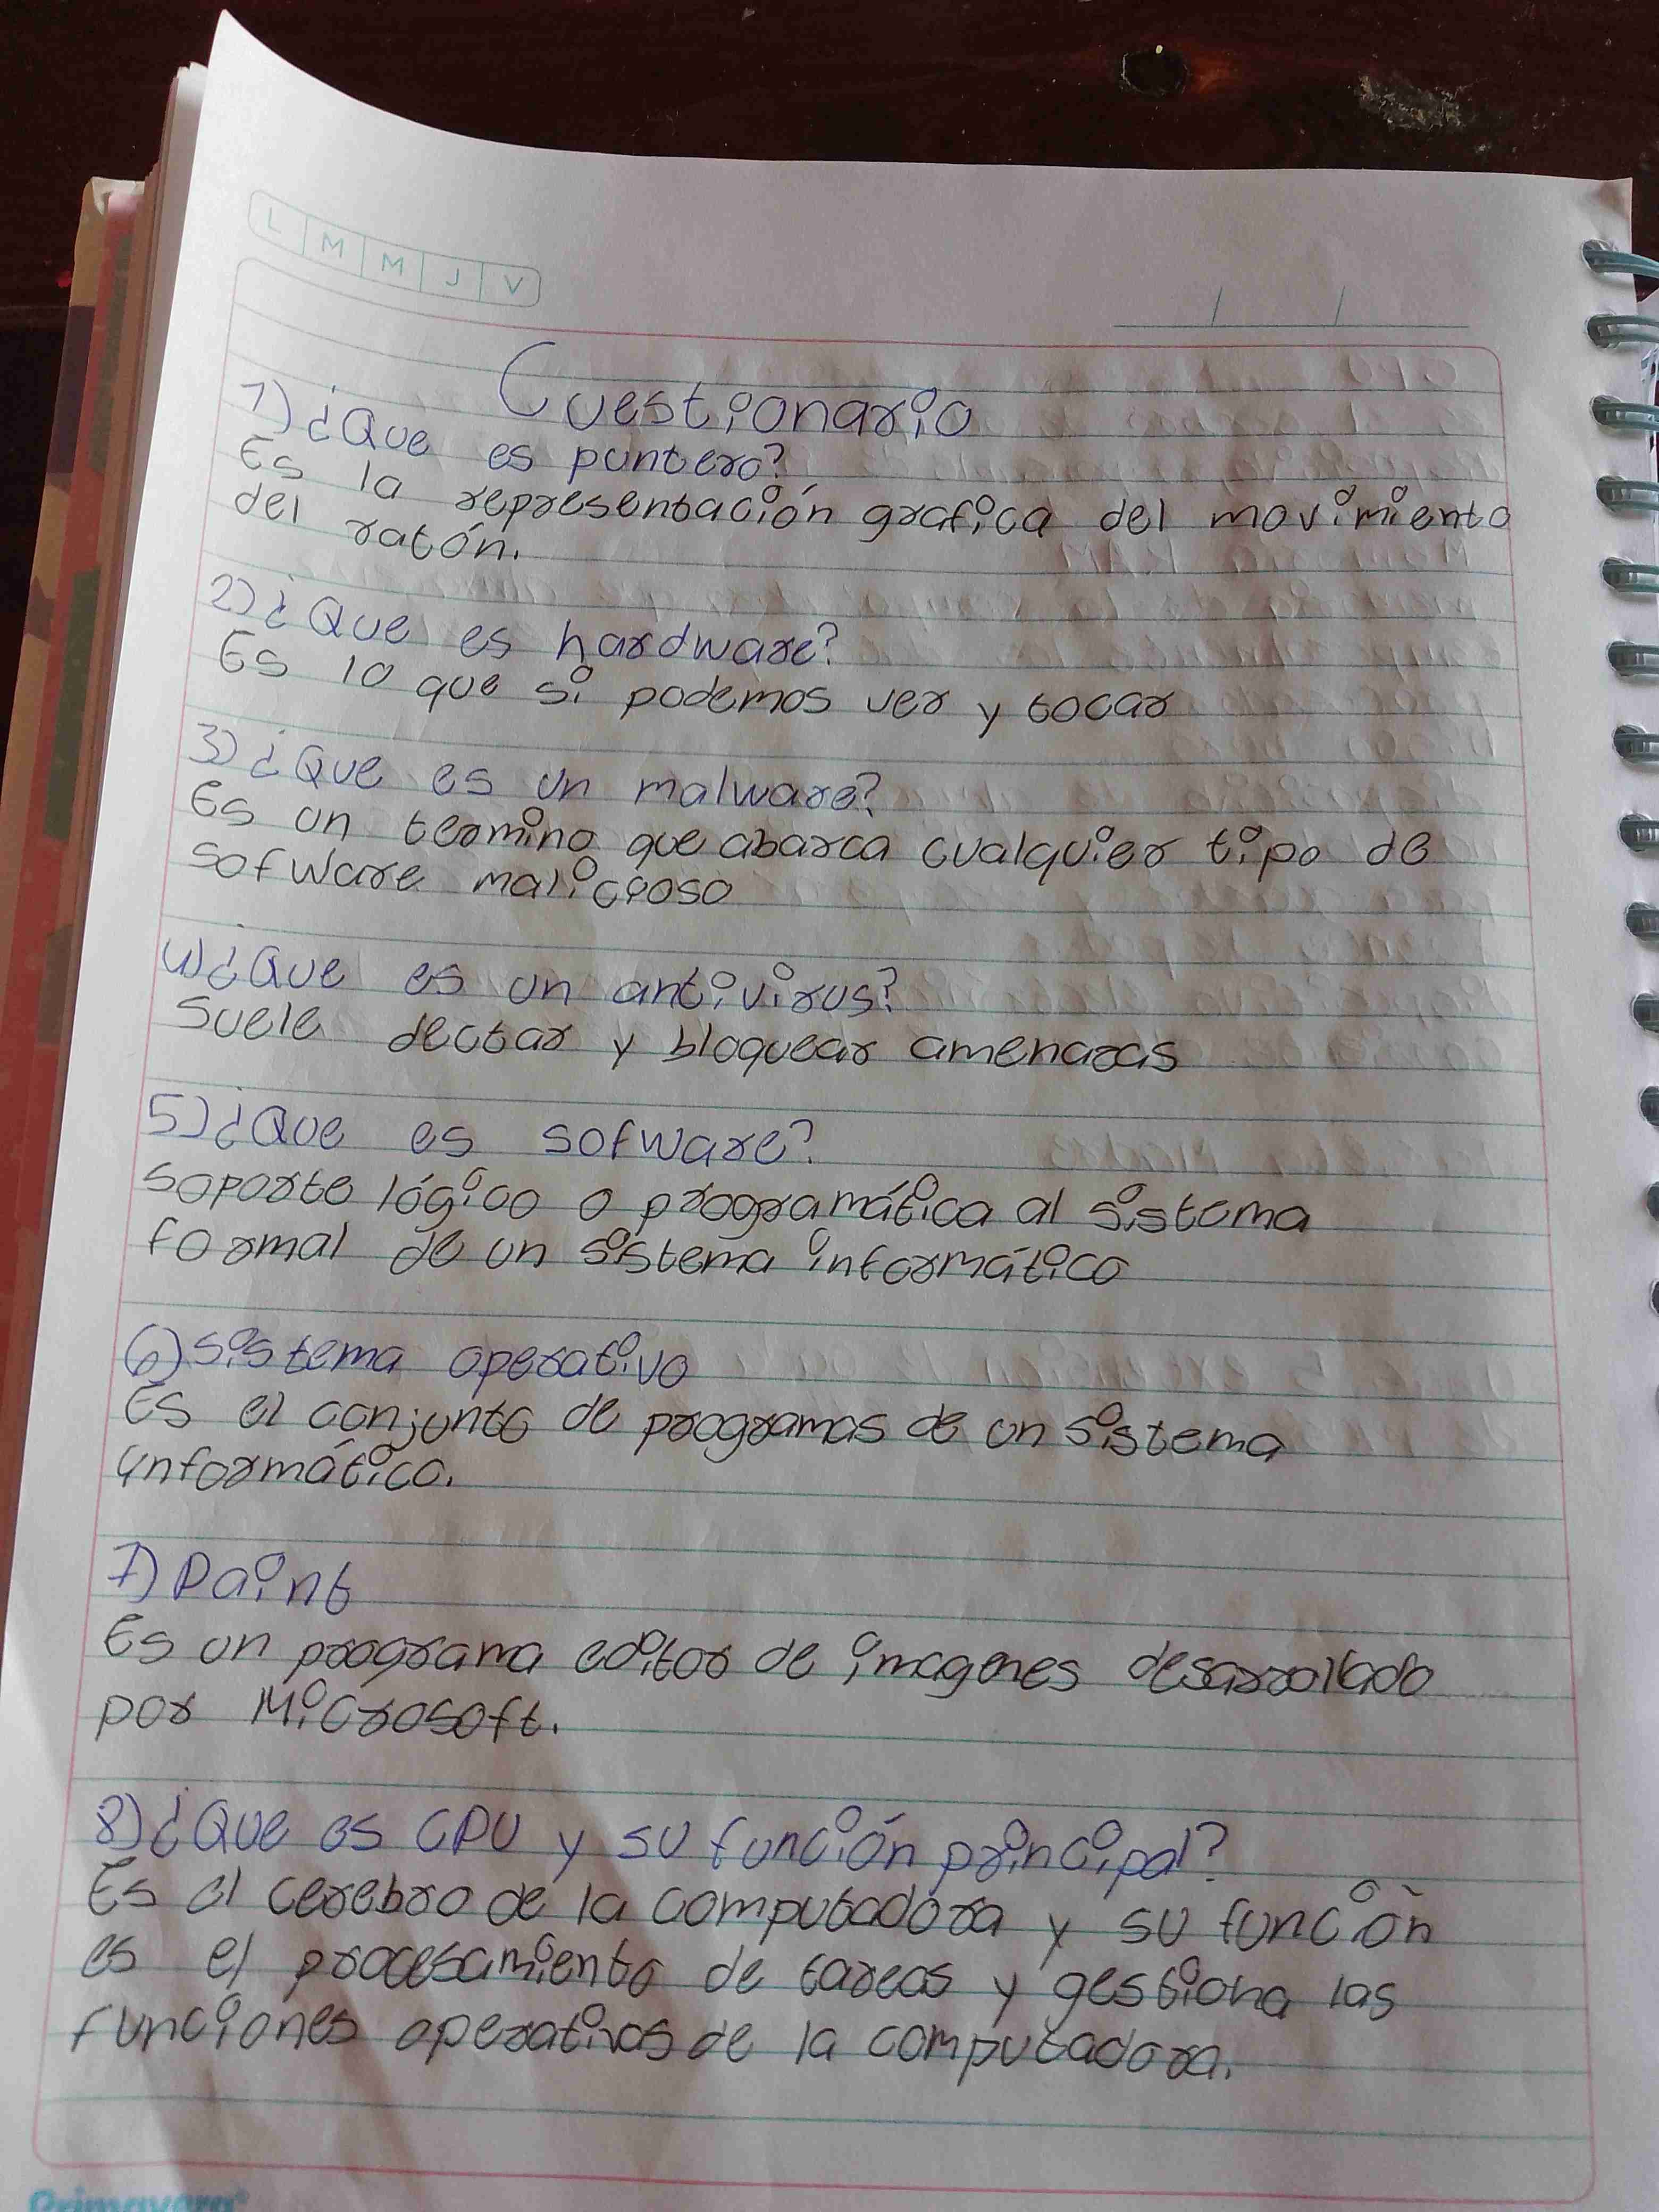 L M M J V
Cuestionario
1) ¿Que es puntero?
Es la representación grafica del movimiento
del ratón.
2) ¿Que es hardware?
Es lo que si podemos ver y tocar
3) ¿Que es un malware?
Es un termino que abarca cualquier tipo de
sofware malicioso
4) ¿Que es un antivirus?
Suele dectar y bloquear amenazas
5) ¿Que es sofware?
Soporte lógico o programática al sistema
formal de un sistema informático
6) Sistema operativo
Es el conjunto de programas de un sistema
informático.
7) Paint
Es un programa editor de imagenes desarrollado
por Microsoft.
8) ¿Que es CPU y su función principal?
Es el cerebro de la computadora y su función
es el procesamiento de tareas y gestiona las
funciones operativas de la computadora.
Primavera